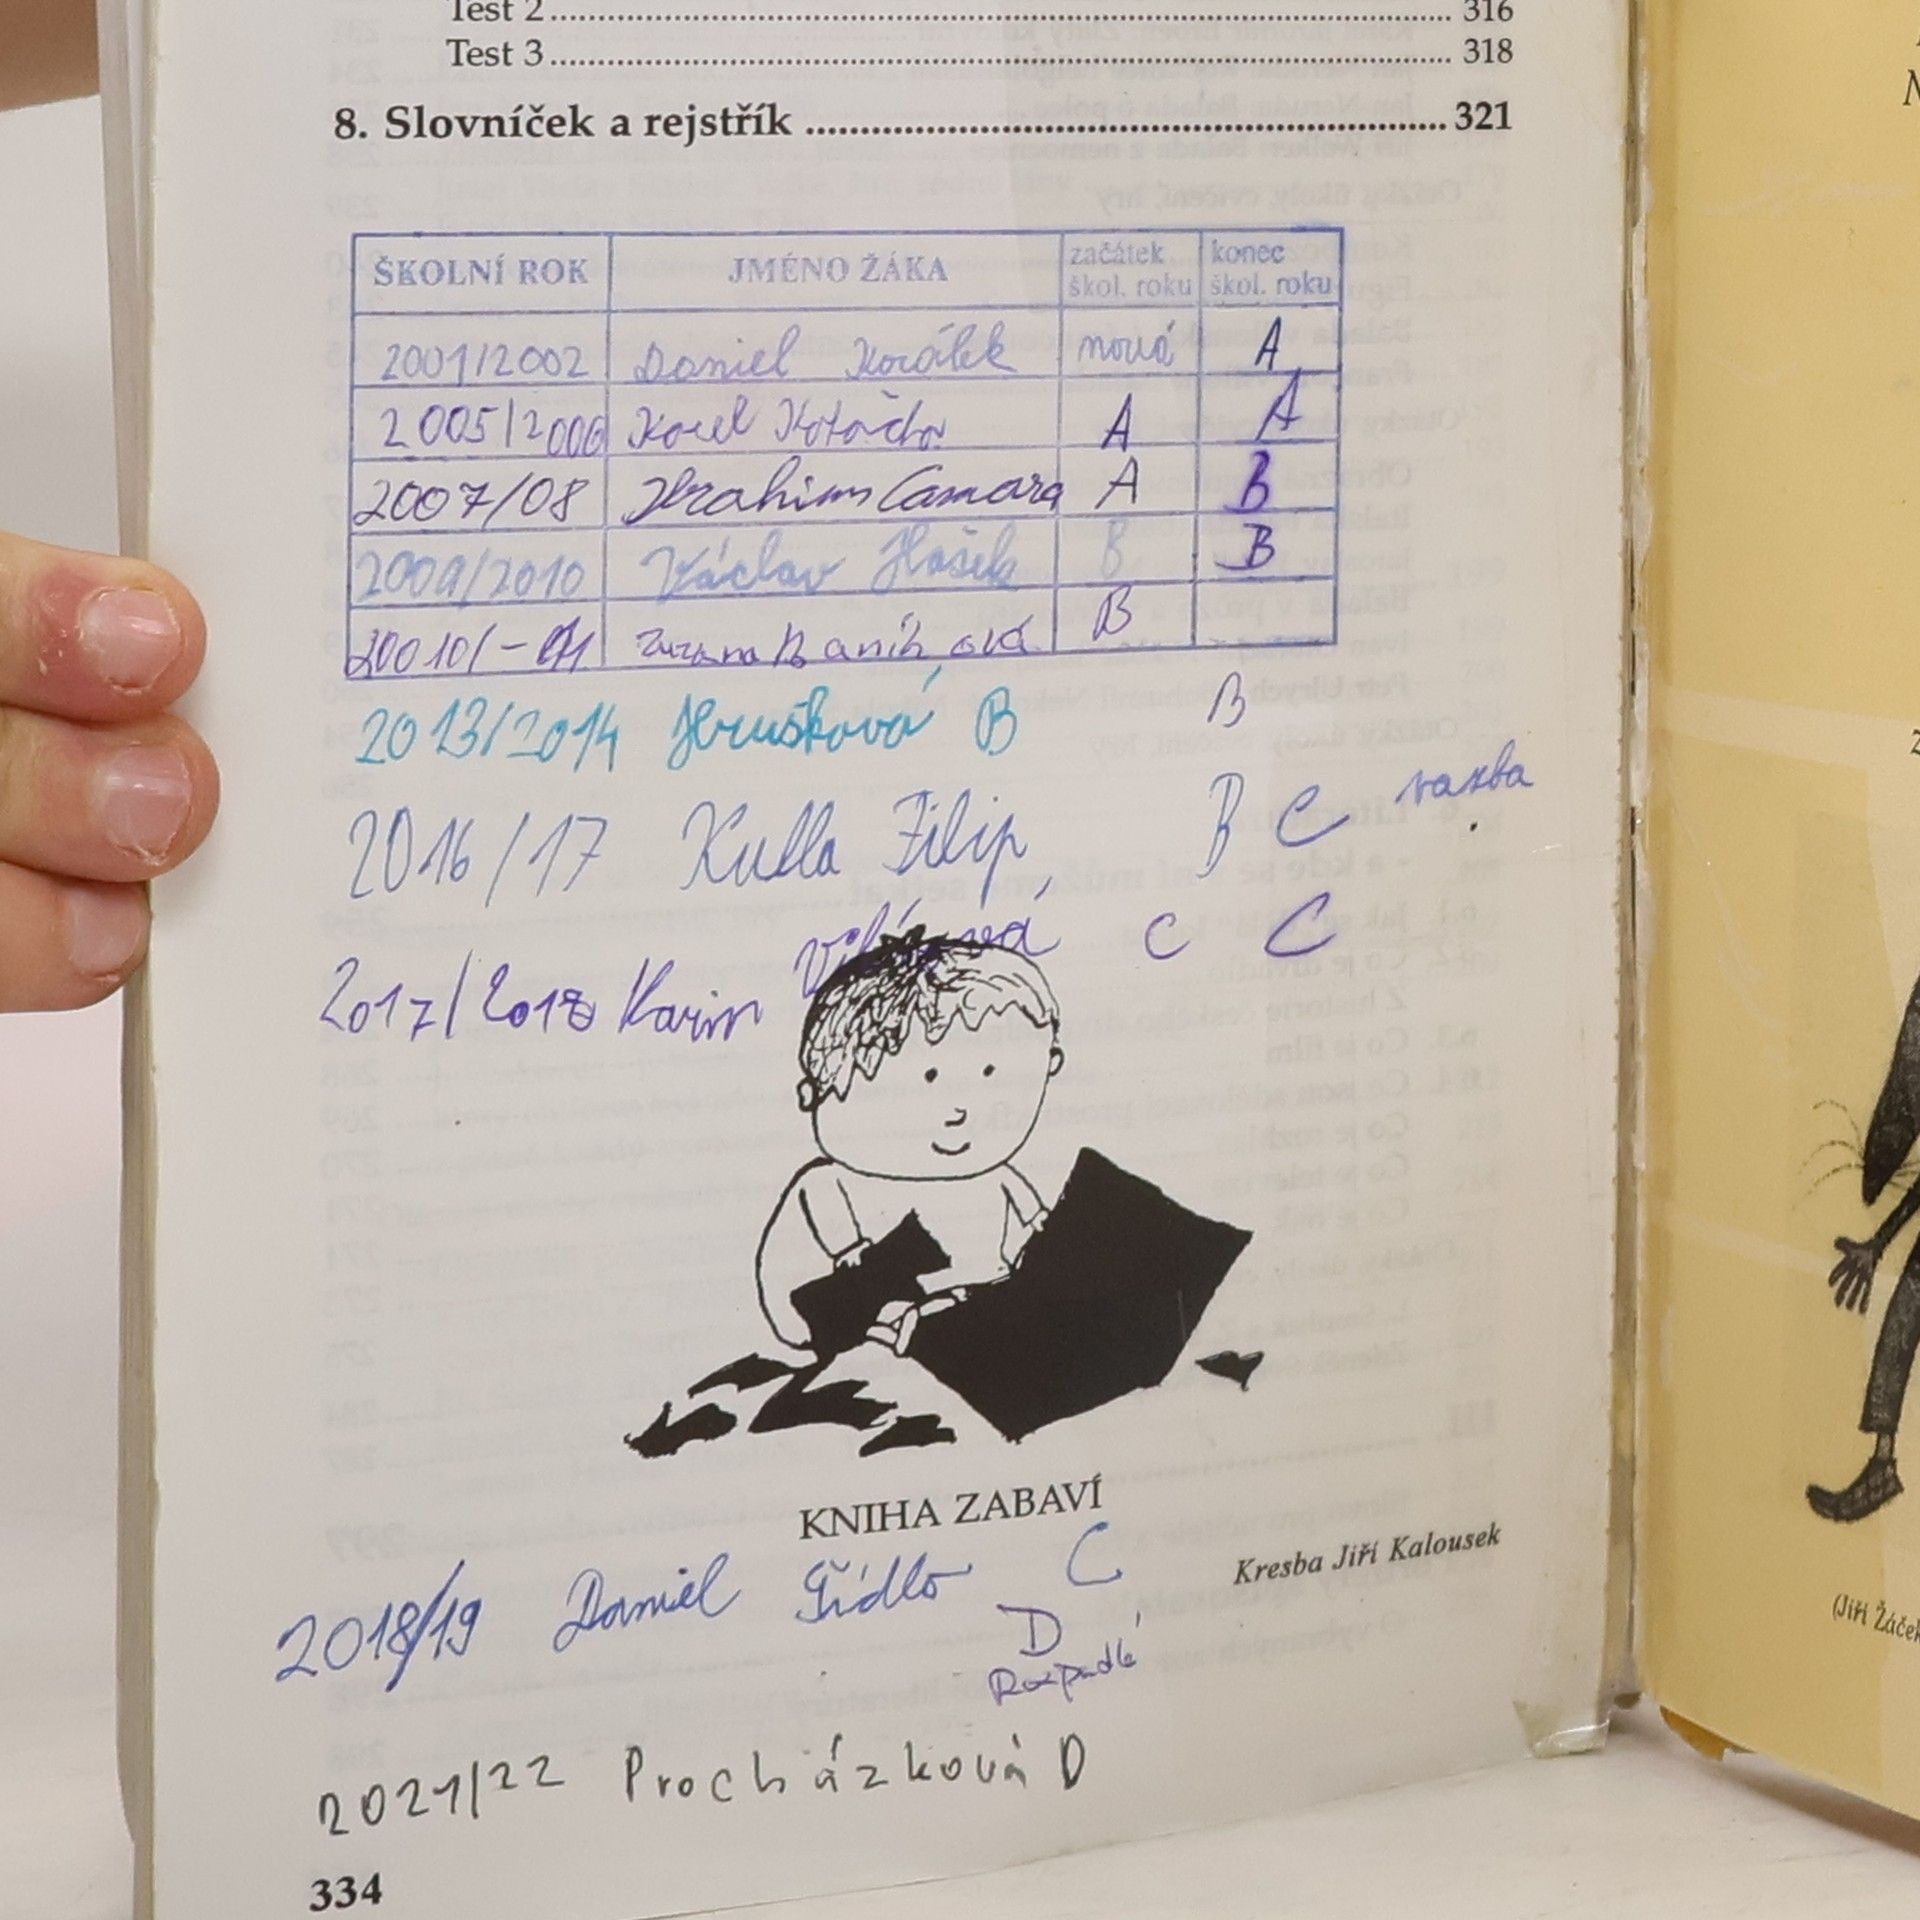 Test 2 316
Test 3 318
8. Slovníček a rejstřík 321
ŠKOLNÍ ROK JMÉNO ŽÁKA začátek škol. roku konec škol. roku
2001/2002 Daniel Korálek nová A
2005/2006 Karel A A
2007/08 Ibrahim Camara A B
2009/2010 Václav Hašek B B
20010/-011 Zuzana Baníková B
2013/2014 Hrušková B B
2016/17 Kulla Filip B C vazba
2017/2018 Karin C C
KNIHA ZABAVÍ
Kresba Jiří Kalousek
2018/19 Daniel Šídlo C
D
Rozpadlé
2021/22 Procházková D
334
(Jiří Žáček